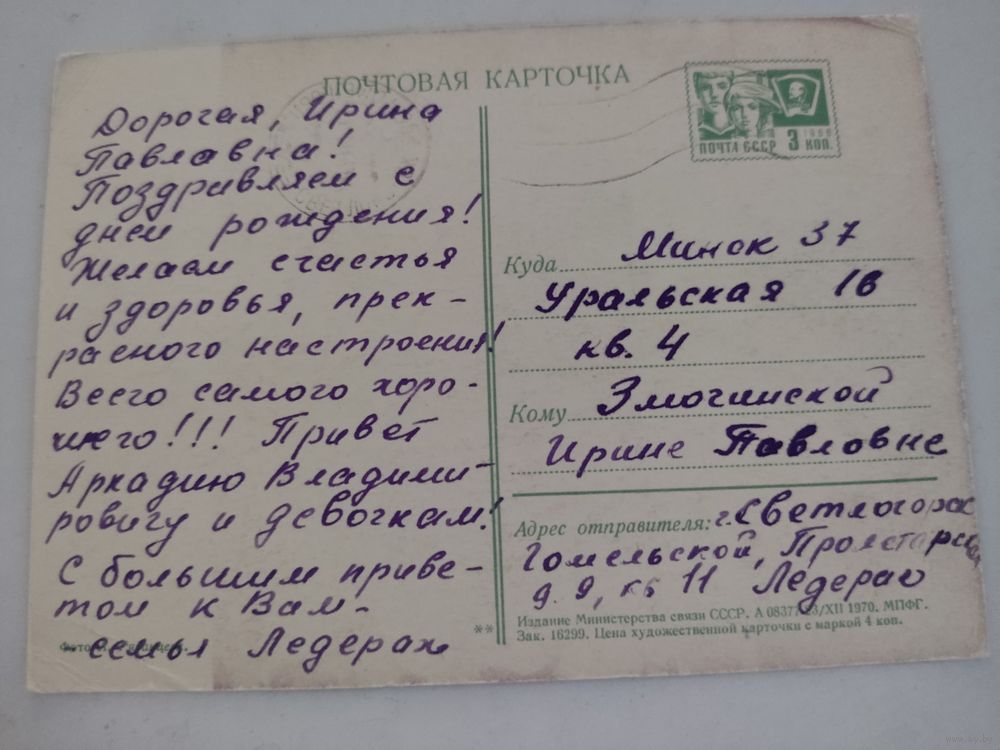 ПОЧТОВАЯ КАРТОЧКА
Дорогая, Ирина
Павлавна!
Поздравляем с
днем рождения!
Желаем счастья
и здоровья, прек-
расного настроения!
Всего самого хоро-
шего!!! Привет
Аркадию Владими-
ровичу и девочкам!
С большим приве-
том к Вам-
семья Ледерах
**
ПОЧТА СССР 3 КОП.
1966
Куда Минск 37
Уральская 1в
кв. 4
Кому Змочинской
Ирине Павловне
Адрес отправителя: г. Светлогорск
Гомельской,
д. 9, кв 11 Ледерах
Издание Министерства связи СССР. А 0837 /XII 1970. МПФГ.
Зак. 16299. Цена художественной карточки с маркой 4 коп.